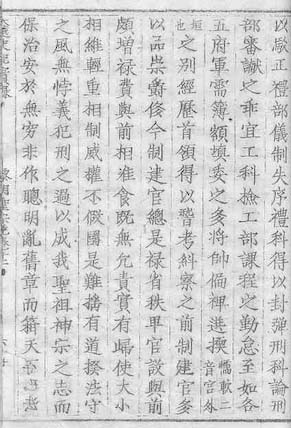 正禮部儀制失序禮科得以封彈刑科論刑
部審讞之乖宜工科撿工部課程之勤怠至如各
五府軍需簿額填委之多將帥偏裨選 二音宮外
垣也之別經歷首領得以考糾察之前制建官多
以品崇爵今制建官總是祿省秩卑官設與前
頗增祿費與前相准食既無冗責實有歸使大小
相維輕重相制威權不假國是難搖有道揆法守
之風無悖義犯刑之過以成我聖祖神宗之志而
保治安於無穷非作聰明亂舊章而藉天